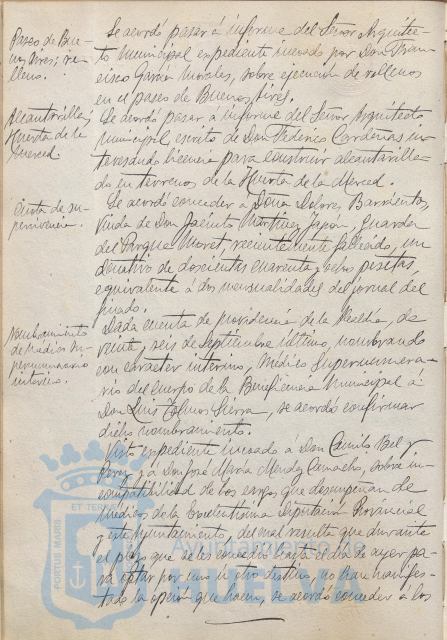 Paseo de Bue-
nos Aires; re-
lleno.
Se acordó pasar á informe del Señor Arquitec-
to Municipal expediente incoado por Don Fran-
cisco García Morales, sobre ejecución de rellenos
en el paseo de Buenos Aires.
Alcantarilla,
Huerta de la
Merced.
Se acordó pasar á informe del Señor Arquitecto
Municipal escrito de Don Federico Cárdenas in-
teresando licencia para construir alcantarilla-
do en terrenos de la Huerta de la Merced.
Junta de su-
pervivencia.
Se acordó conceder á Doña Dolores Barrientos,
Viuda de Don Jacinto Martínez Japón, Guarda
del Parque Moret, recientemente fallecido, un
donativo de doscientas cuarenta y ocho pesetas,
equivalente á dos mensualidades del jornal del
finado.
Nombramiento
de Médico su-
pernumerario
interino.
Dada cuenta de providencia de la Alcaldía, de
veinte y seis de Septiembre último, nombrando
con carácter interino, Médico Supernumera-
rio del cuerpo de la Beneficencia Municipal á
Don Luis Sierra, se acordó confirmar
dicho nombramiento.
Visto expediente incoado á Don Camilo Bel y
y á Don José María Méndez Camacho, sobre in-
compatibilidad de los cargos que desempeñan de
Médicos de la Excelentísima Diputación Provincial
y este Ayuntamiento, del cual resulta que durante
el plazo que se les concedió hasta el día de ayer pa-
ra optar por uno ú otro destino, no han manifes-
tado la opción que hacen, se acordó conceder á los
PORTUS MARIS ET TERRAE
Ayuntamiento
HUELVA